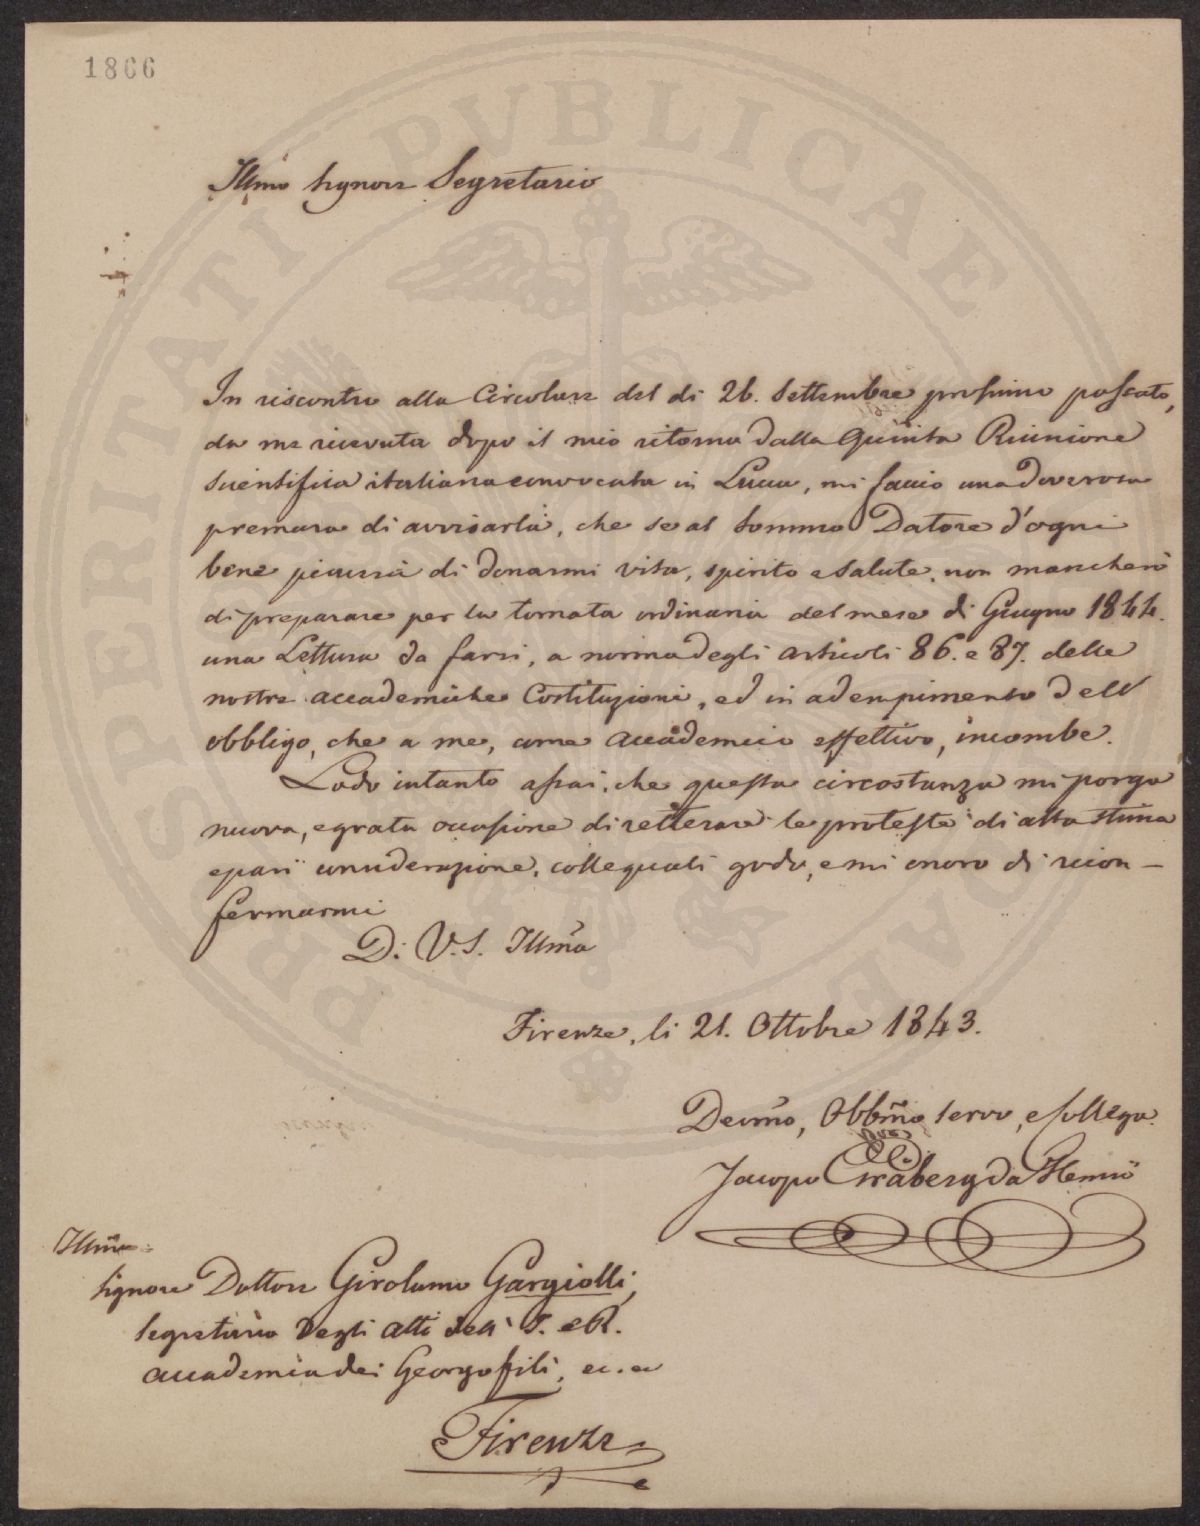 1866
PROSPERITATI PVBLICAE
Illmo Signore Segretario
In riscontro alla Circolare del dì 26. Settembre prossimo passato,
da me ricevuta dopo il mio ritorno dalla Quinta Riunione
scientifica italiana convocata in Lucca, mi faccio una doverosa
premura di avvisarla, che se al Sommo Datore d'ogni
bene piacerà di donarmi vita, spirito e salute, non mancherò
di preparare per la tornata ordinaria del mese di Giugno 1844.
una Lettura da farsi, a norma degli articoli 86. e 87. delle
nostre accademiche Costituzioni, ed in adempimento dell'
obbligo, che a me, come accademico effettivo, incombe.
Lodo intanto assai, che questa circostanza mi porga
nuova, e grata occasione di reiterare le proteste di alta stima
e pari considerazione, colle quali godo, e mi onoro di ricon-
fermarmi
D. V. S. Illma
Firenze, li 21. Ottobre 1843.
Devmo, Obbmo servo, e Collega
Jacopo Gråberg da Hemsö
Illmo
Signore Dottore Girolamo Gargiolli,
Segretario degli Atti dell' I. e R.
accademia dei Georgofili, ec. ec
Firenze